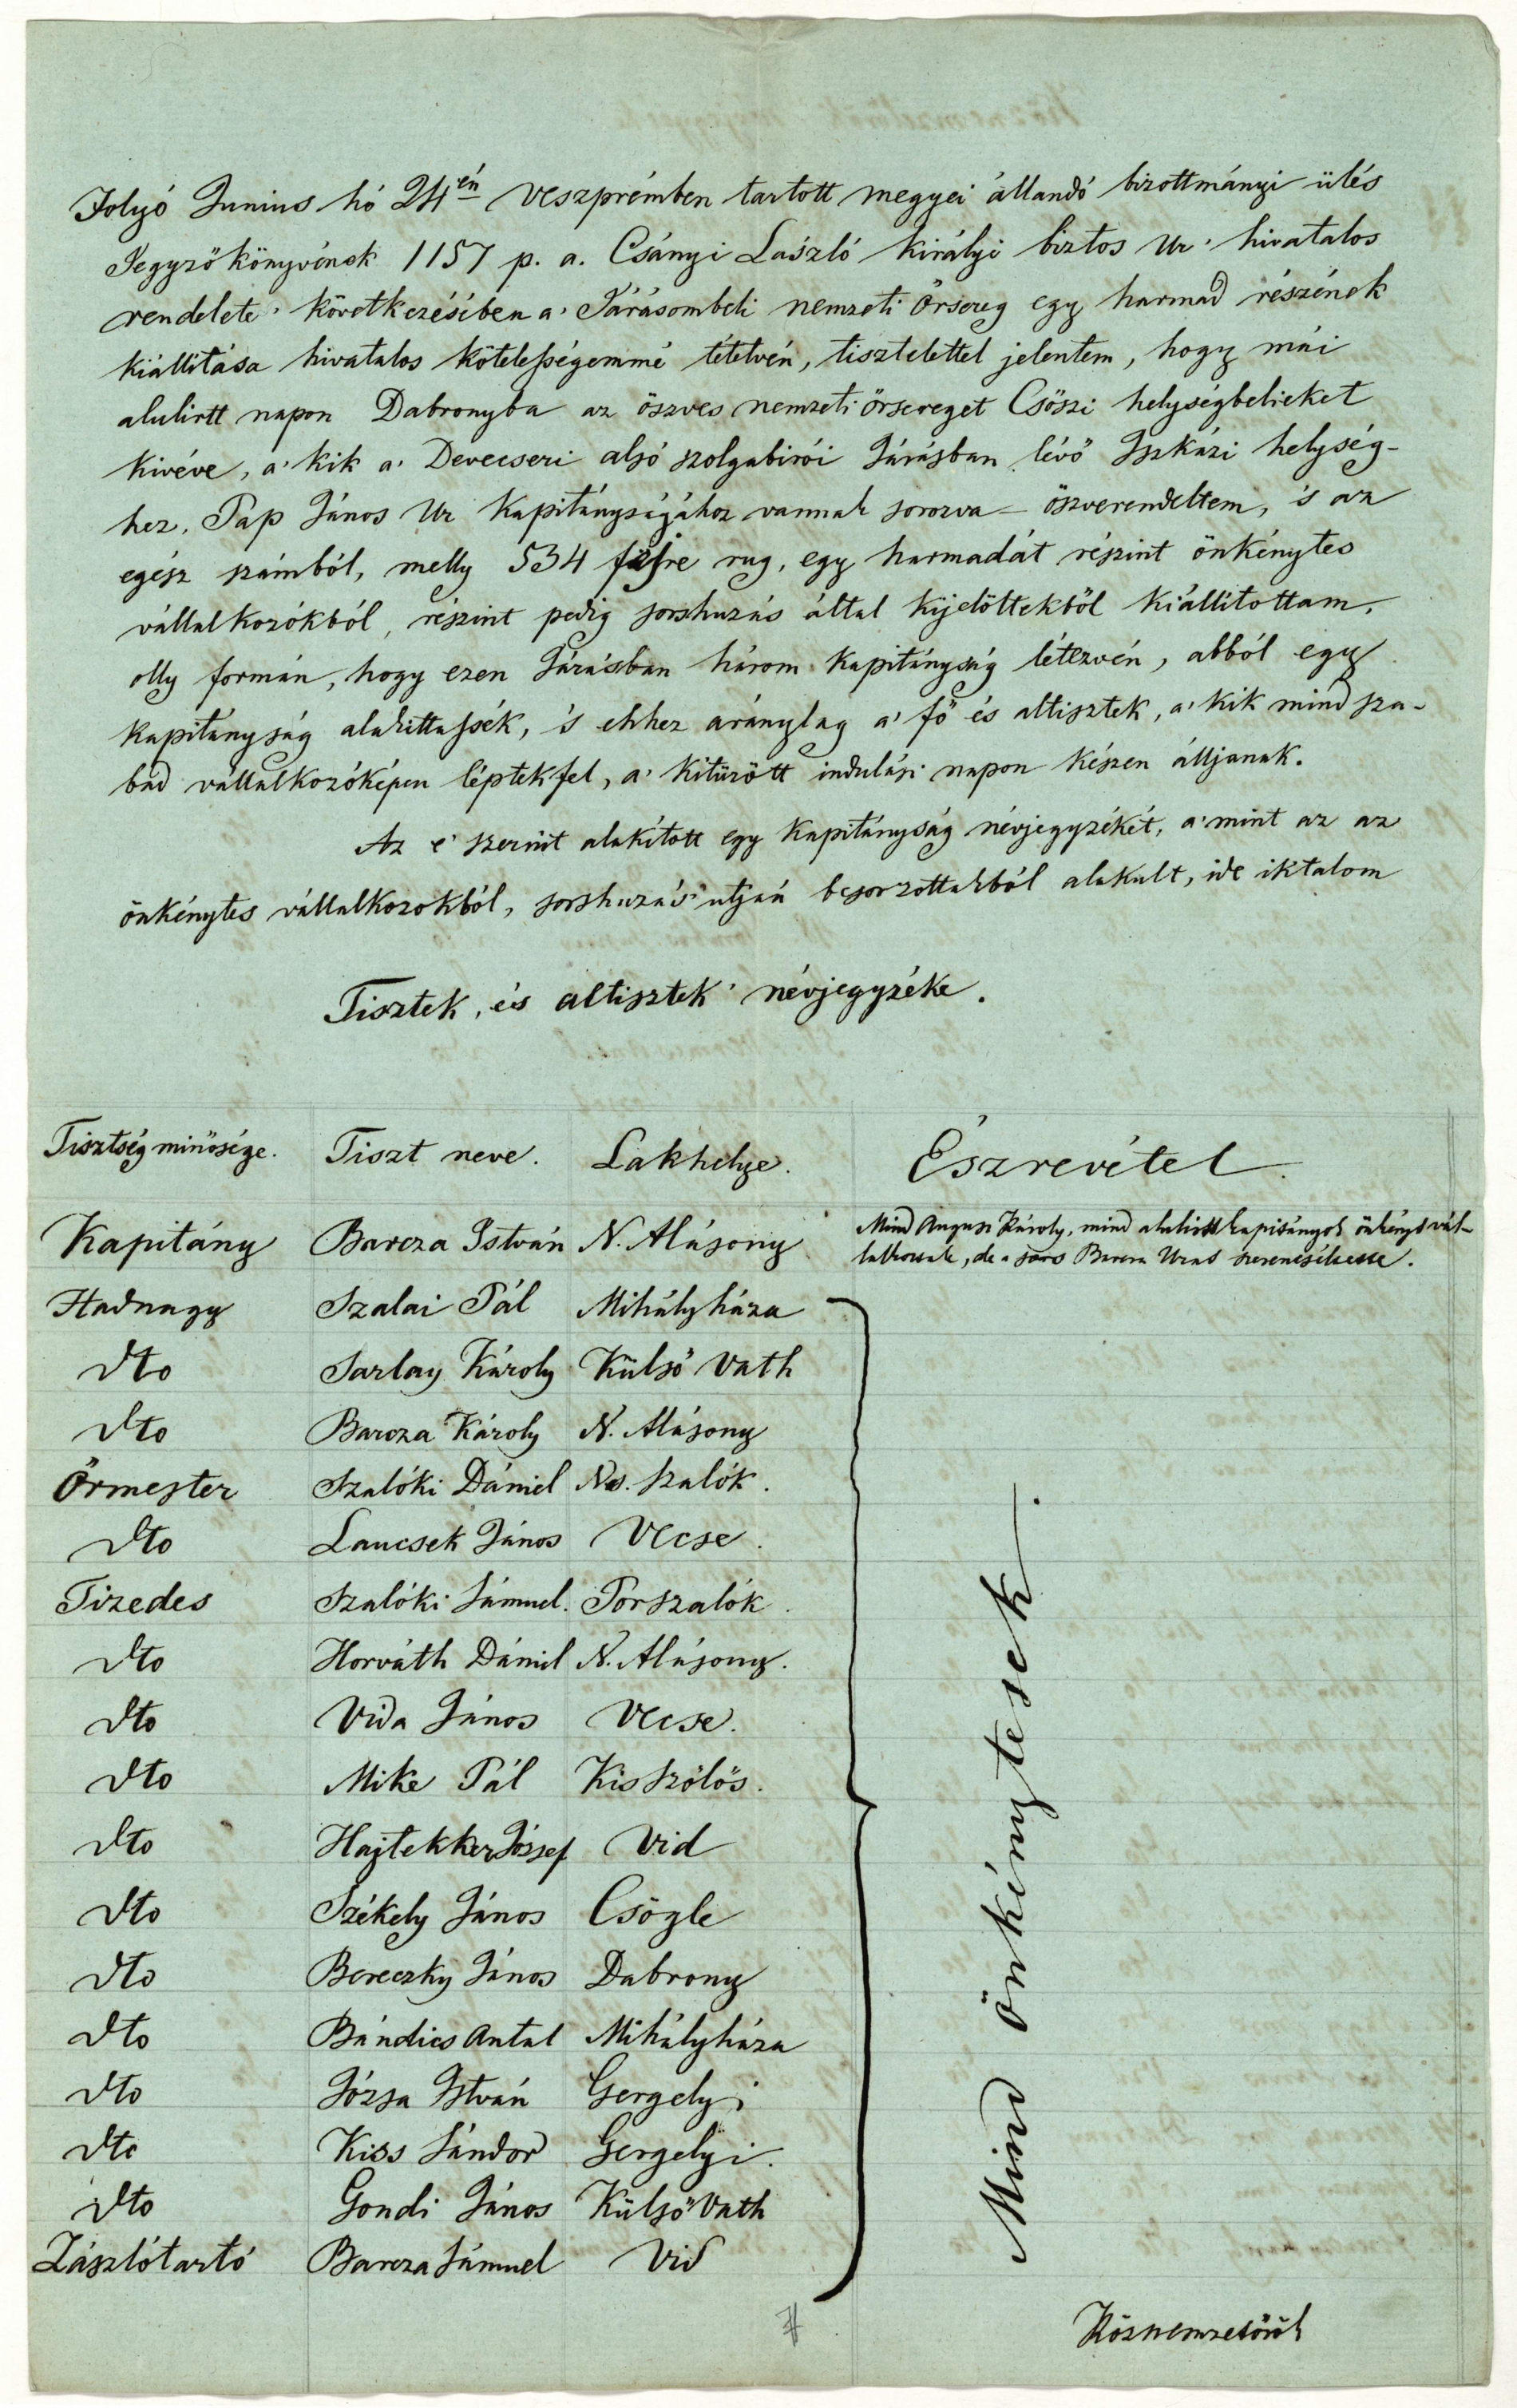 Folyó Junius hó 24én Veszprémben tartott megyei állandó bizottmányi ülés
Jegyzőkönyvének 1157 p. a. Csányi László királyi biztos Ur' hivatalos
rendelete' következésében a' Járásombeli nemzeti Őrsereg egy harmad részének
kiállitása hivatalos kötelességemmé tétetvén, tisztelettel jelentem, hogy mái
alulirtt napon Dabronyba az öszves nemzeti őrsereget Csőszi helységbelieket
kivéve, a' kik a' Devecseri alsó szolgabirói Járásban lévő Iszkázi helység-
hez, Pap János Ur Kapitányságához vannak sorozva – öszverendeltem, 's az
egész számból, melly 534 főre rug, egy harmadát részint önkénytes
vállalkozókból, részint pedig sorshuzás által kijelöltekből kiállitottam,
olly formán, hogy ezen Járásban három kapitányság létezvén, abból egy
kapitányság alakittassék, 's ehhez aránylag a' fő és altisztek, a' kik mind sza-
bad vállalkozóképen léptek fel, a' kitüzött indulási napon készen álljanak.
Az e' szerint alakitott egy kapitányság névjegyzékét, a' mint az az
önkénytes vállalkozokból, sorshuzás utján besorzottakból alakult, ide iktatom
Tisztek, és altisztek' névjegyzéke.
Tisztség minősége. Tiszt neve. Lakhelye. Észrevétel.
Kapitány Barcza István N. Alásony Mind Angusz Károly, mind alulirtt kapitányok önkényt vál-
lalkoztak, de a sors Barcza Urat szerencséltette.
Hadnagy Szalai Pál Mihályháza
dto Sarlay Károly Külső Vath
dto Barcza Károly N. Alásony
Őrmester Szalóki Dániel Ns. Szalók.
dto Laucsek János Vecse.
Tizedes Szalóki Sámuel. Pórszalók.
dto Horváth Dániel N. Alásony.
dto Vida János Vecse.
dto Mike Pál Kis Szölös.
dto Hajtekker József Vid
dto Székely János Csögle
dto Bereczky János Dabrony
dto Bándics Antal Mihályháza
dto Józsa István Gergelyi
dto Kiss Sándor Gergelyi.
dto Gondi János Külső Vath
Zászlótartó Barcza Sámuel Vid
Mind önkénytesek.
Köznemzetőrök